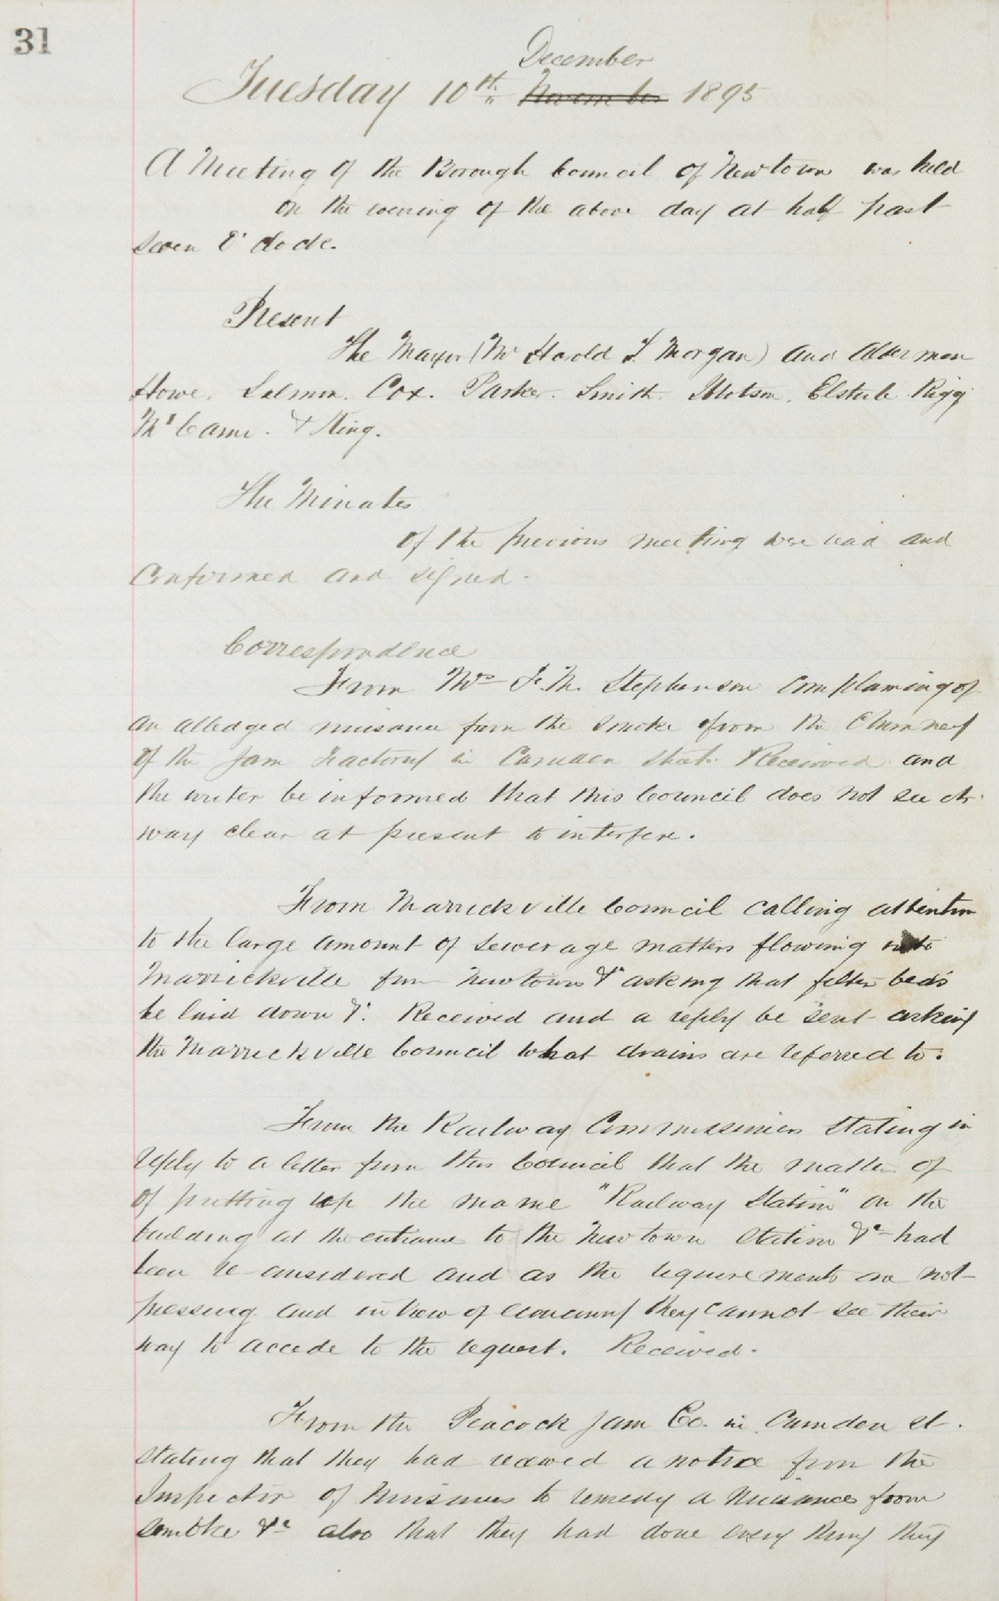 31
December
Tuesday 10th November 1895
A Meeting of the Borough Council of Newtown was held
on the evening of the above day at half past
seven O'clock.
Present
The Mayor (Mr Harold F. Morgan) and Aldermen
Howe. Salmon. Cox. Parker. Smith. Ibbotson. Elstub Rigg
McCame. & King.
The Minutes
of the previous meeting were read and
Confirmed and signed.
Correspondence
From Mrs F. M. Stephenson Complaining of
an alledged nuisance from the smoke from the Chimney
of the Jam Factory in Camden Street. Received and
the writer be informed that this Council does not see its
way clear at present to interfere.
From Marrickville Council calling attention
to the large amount of sewerage matters flowing into
Marrickville from Newtown &c asking that filter beds
be laid down &c. Received and a reply be sent asking
the Marrickville Council what drains are referred to.
From the Railway Commissioners stating in
reply to a letter from this Council that the matter of
of putting up the name "Railway Station" on the
building at the entrance to the Newtown Station &c had
been re-considered and as the requirements are not
pressing and in view of economy they cannot see their
way to accede to the request. Received.
From the Peacock Jam Co. in Camden St.
stating that they had received a notice from the
Inspector of Nuisances to remedy a Nuisance from
smoke &c also that they had done every thing they